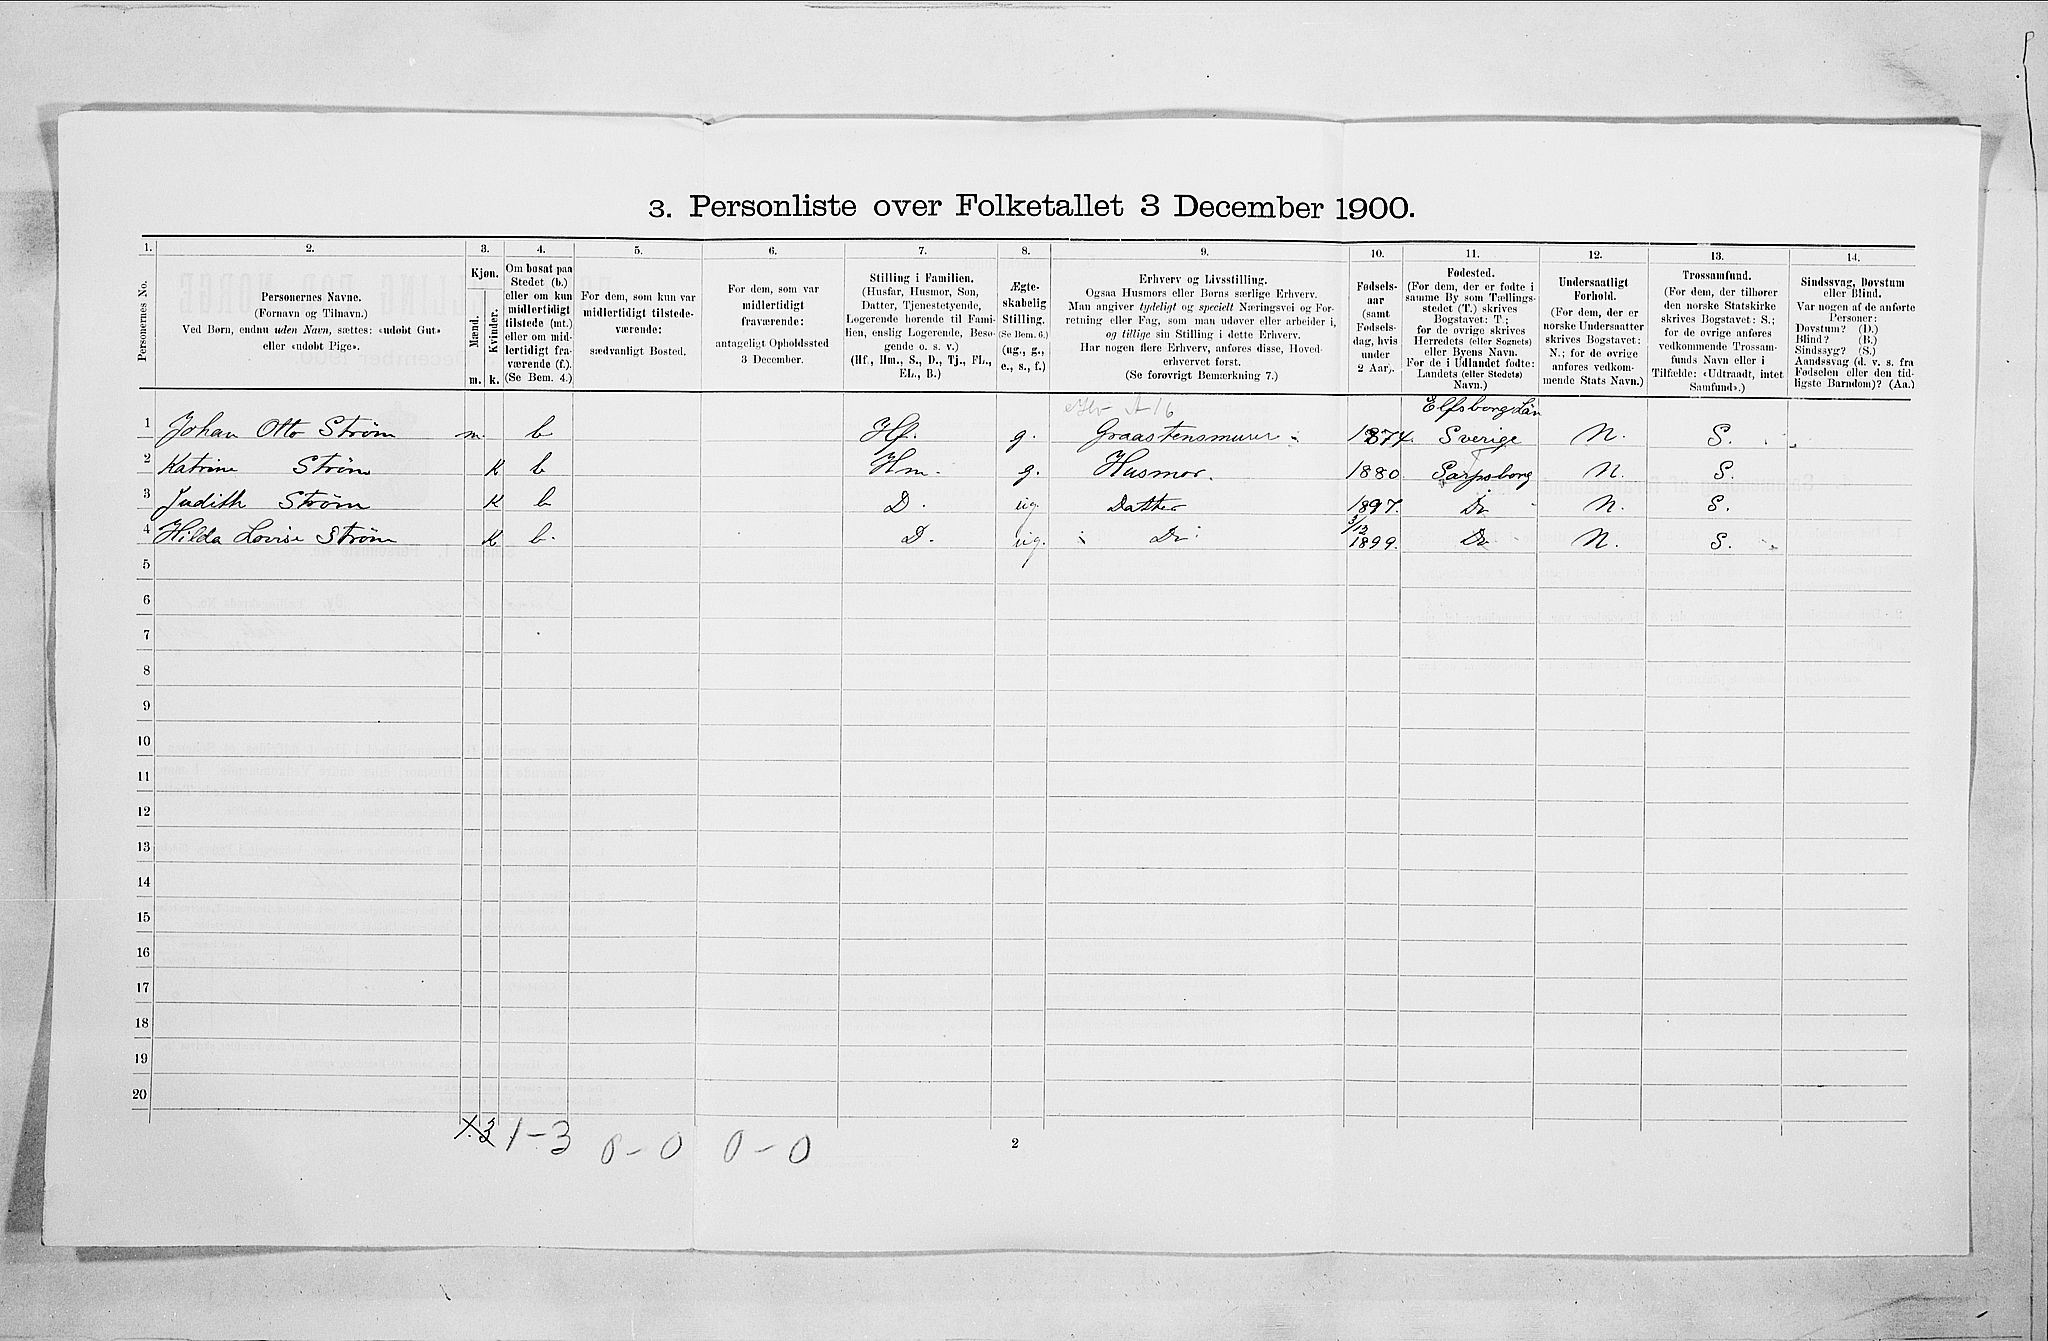 3. Personliste over Folketallet 3 December 1900.
1. 2. 3. 4. 5. 6. 7. 8. 9. 10. 11. 12. 13. 14.
Personernes No.
Personernes Navne.
(Fornavn og Tilnavn.)
Ved Børn, endnu uden Navn, sættes: «udøbt Gut»
eller «udøbt Pige».
Kjøn.
Mænd.
Kvinder.
m. k.
Om bosat paa
Stedet (b.)
eller om kun
midlertidigt
tilstede (mt.)
eller om mid-
lertidigt fra-
værende (f.).
(Se Bem. 4.)
For dem, som kun var
midlertidigt tilstede-
værende:
sædvanligt Bosted.
For dem, som var
midlertidigt
fraværende:
antageligt Opholdssted
3 December.
Stilling i Familien.
(Husfar, Husmor, Søn,
Datter, Tjenestetyende,
Logerende hørende til Fami-
lien, enslig Logerende, Besø-
gende o. s. v.)
(Hf., Hm., S., D., Tj., FL.,
EL., B.)
Ægte-
skabelig
Stilling.
(Se Bem. 6.)
(ug., g.,
e., s., f.)
Erhverv og Livsstilling.
Ogsaa Husmors eller Børns særlige Erhverv.
Man angiver tydeligt og specielt Næringsvei og For-
retning eller Fag, som man udøver eller arbeider i,
og tillige sin Stilling i dette Erhverv.
Har nogen flere Erhverv, anføres disse, Hoved-
erhvervet først.
(Se forøvrigt Bemærkning 7.)
Fødsels-
aar
(samt
Fødsels-
dag, hvis
under
2 Aar).
Fødested.
(For dem, der er fødte i
samme By som Tællings-
stedet (T.) skrives
Bogstavet: T;
for de øvrige skrives
Herredets (eller Sognets)
eller Byens Navn.
For de i Udlandet fødte:
Landets (eller Stedets)
Navn.)
Undersaatligt
Forhold.
(For dem, der er
norske Undersaatter
skrives Bogstavet:
N.; for de øvrige
anføres vedkom-
mende Stats Navn.)
Trossamfund.
(For dem, der tilhører
den norske Statskirke
skrives Bogstavet: S.;
for de øvrige anføres
vedkommende Trossam-
funds Navn eller i
Tilfælde: «Udtraadt, intet
Samfund».)
Sindssvag, Døvstum
eller Blind.
Var nogen af de anførte
Personer:
Døvstum? (D.)
Blind? (B.)
Sindssyg? (S.)
Aandssvag (d. v. s. fra
Fødselen eller den tid-
ligste Barndom)? (Aa.)
A 16
Elfsborg Län
1 Johan Otto Strøm m. b Hf. g. Graastensmurer 1874. Sverige N. S.
2 Katrine Strøm K b Hm. g. Husmor. 1880. Sarpsborg N. S.
3 Judith Strøm K b D. ug. Datter 1897. Do N. S.
3/12
4 Hilda Lovise Strøm K b. D. ug. Do 1899. Do N. S.
5
6
7
8
9
10
11
12
13
14
15
16
17
18
19
20
1.3 1-3 0-0 0-0
2